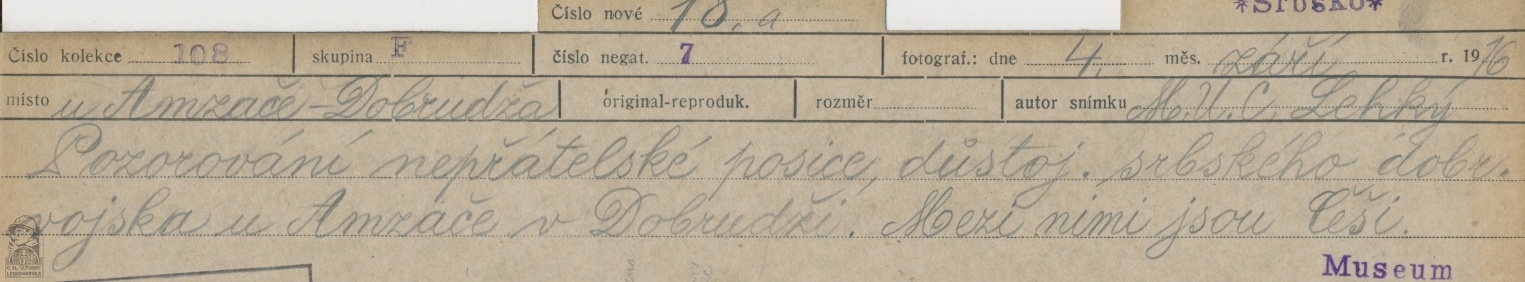 Číslo nové 18. a
*Srbsko*
Číslo kolekce 108 skupina F číslo negat. 7 fotograf.: dne 4. měs. září r. 1916
místo u Amzače-Dobrudža original-reproduk. rozměr autor snímku M.U.C. Lehký
Pozorování nepřátelské posice, důstoj. srbského dobr.
vojska u Amzače v Dobrudži. Mezi nimi jsou Češi.
Museum